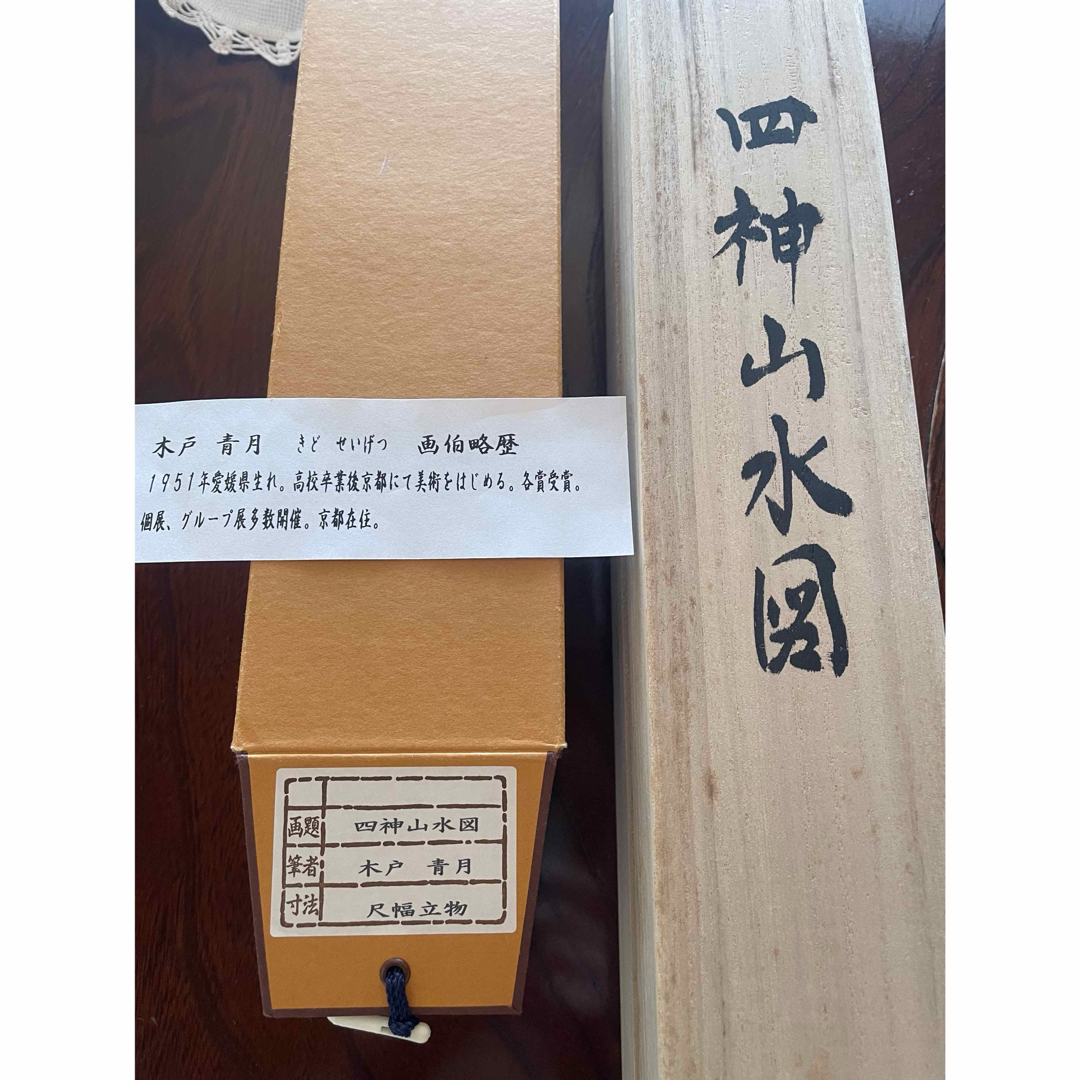 四神山水図
木戸 青月 きど せいげつ 画伯略歴
1951年愛媛県生れ。高校卒業後京都にて美術をはじめる。各賞受賞。
個展、グループ展多数開催。京都在住。
画題 四神山水図
筆者 木戸 青月
寸法 尺幅立物